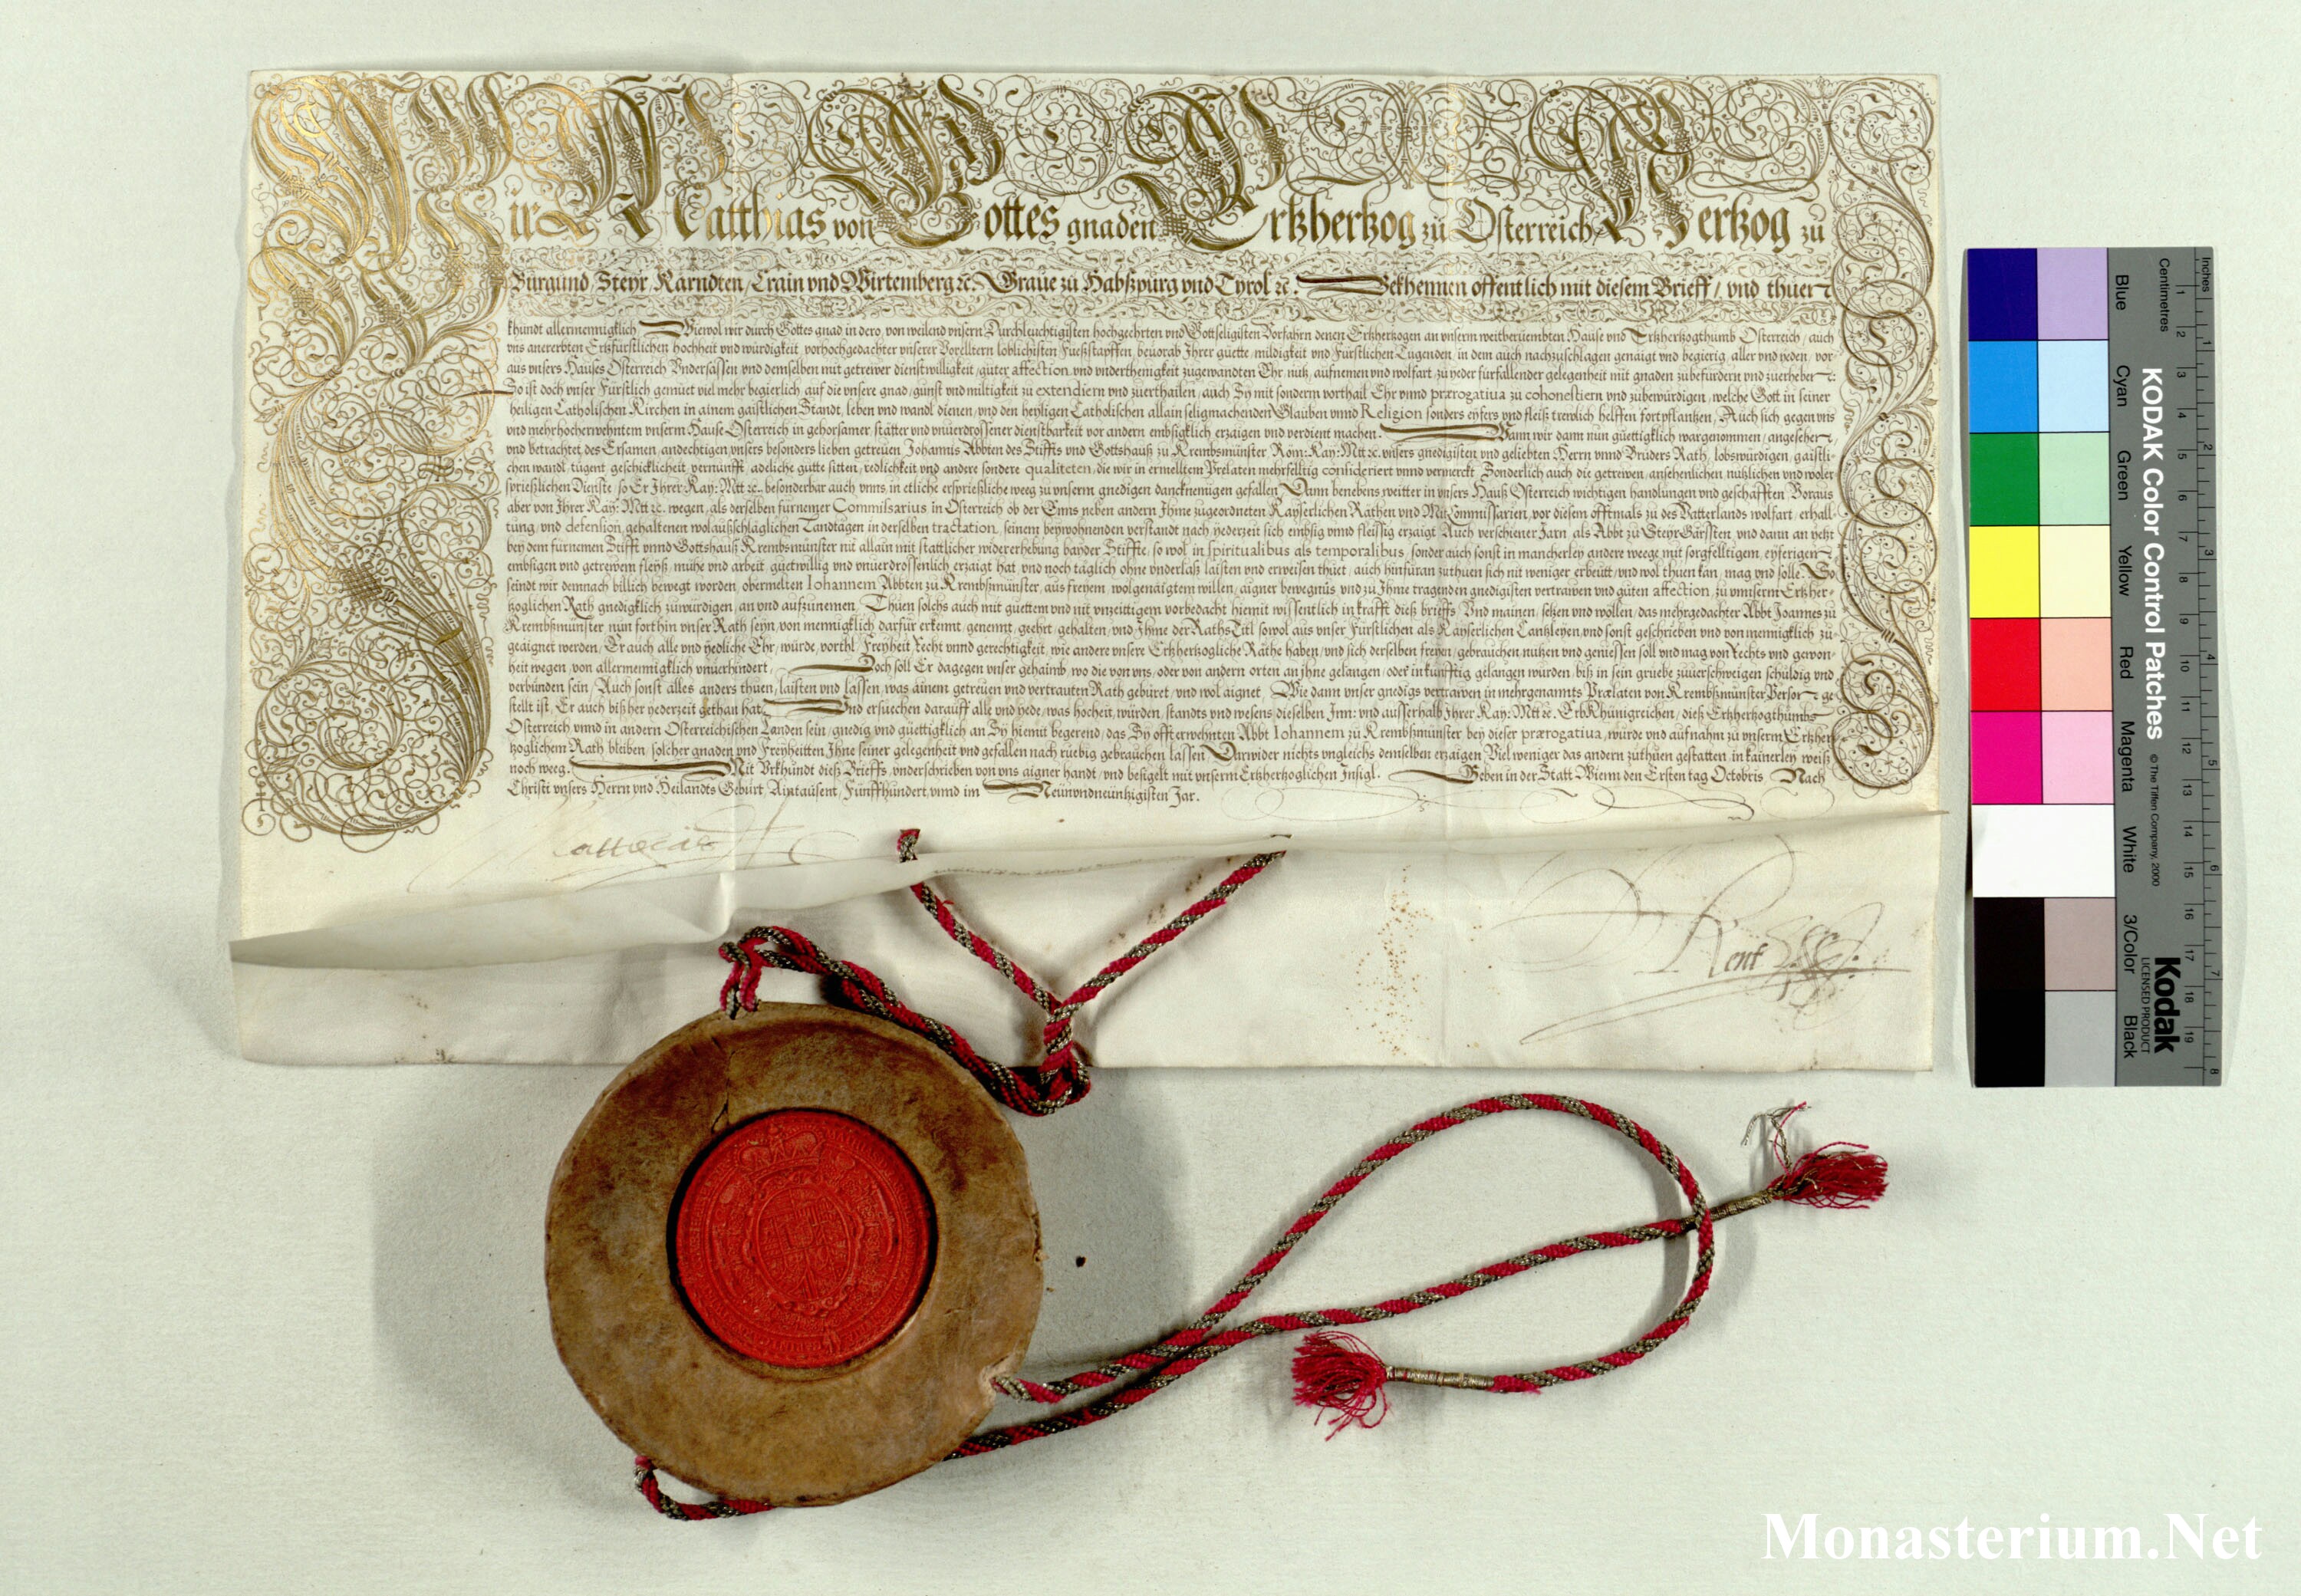 Wir Matthias von Gottes gnaden Ertzhertzog zu Osterreich Hertzog zu
Burgund, Steyr, Karndten, Crain vnd Wirtemberg ꝛc. Graue zu Habspurg vnd Tyrol ꝛc. Bekhennen offentlich mit diesem Brieff, vnd thuen
khundt allermenniglich Wiewol wir durch Gottes gnad in dero, von weilend vnsern Durchleuchtigisten hochgeehrten vnd Gottseligisten Vorfahrn denen Ertzherzogen an vnserm weitberüembten Hause vnd Ertzherzogthumb Osterreich, auch
vns anererbten Ertzfürstlichen hochheit vnd würdigkeit vorhochgedachter vnserer Vorelltern loblichisten Fuesstapffen, beuorab Ihrer guette, mildigkeit vnd Fürstlichen Tugenden, in dem auch nachzuschlagen genaigt vnd begierig, aller vnd yeden, vor-
aus vnsers Hauses Osterreich Vndersassen vnd demselben mit getrewer dienstwilligkeit, guter affection, vnd vnderthenigkeit zugewandten Ehr, nutz, aufnemen vnd wolfart, zu yeder fürfallender gelegenheit mit gnaden zubefürdern vnd zuerheben:
So ist doch vnser Fürstlich gemüet viel mehr begierlich auf die vnsere gnad, gunst vnd miltigkeit zu extendiern vnd zuerthailen, auch Sy mit sonderm vorthail Ehr vnnd prærogatiua zu cohonestiern vnd zubewürdigen, welche Gott in seiner
heiligen Catholischen Kirchen in ainem gaistlichen Standt, leben vnd wandl dienen, vnd den heyligen Catholischen allain seligmachenden Glauben vnnd Religion sonders eyfers vnd fleiß trewlich helffen fortpflantzen, Auch sich gegen vns
vnd mehrhocherwehntem vnserm Hause Osterreich in gehorsamer stätter vnd vnuerdrossener dienstbarkeit vor andern embsigklich erzaigen vnd verdient machen. Wann wir dann nun güettigklich wargenommen, angesehen,
vnd betrachtet, des Ersamen, andechtigen vnsers besonders lieben getreuen Johannis Abbten des Stiffts vnd Gottshauß zu Krembsmünster Röm: Kay: Mtt ꝛc. vnsers gnedigisten vnd geliebten Herrn vnnd Bruders Rath, lobswürdigen, gaistli-
chen wandl, tugent, geschicklicheit, vernunfft, adeliche gutte sitten, redlichkeit vnd andere sondere qualiteten, die wir in ermelltem Prelaten mehrfelltig confideriert vnnd vermerckt, Sonderlich auch die getrewen, ansehenlichen nutzlichen vnd woler
sprießlichen Dienste, so Er Ihrer Kay: Mtt ꝛc. besonderbar auch vnns in etliche ersprießliche weeg zu vnserm gnedigen dancknemigen gefallen, Dann benebens weitter in vnsers Hauß Osterreich wichtigen handlungen vnd geschäfften Voraus
aber von Ihrer Kay: Mtt ꝛc. wegen, als derselben furnemer Commissarius in Osterreich ob der Enns neben andern Ihme zugeordneten Kayserlichen Räthen vnd Mit Commissarien, vor diesem offtmals zu des Vatterlands wolfart, erhall-
tung, vnd defension, gehaltenen wolaußschläglichen Landtägen in derselben tractation, seinem beywohnenden verstandt nach yederzeit sich embsig vnnd fleissig erzaigt Auch verschiener Jarn, als Abbt zu Steyr Gärssten, vnd dann an yetzt
bey dem fürnemen Stifft vnnd Gottshauß Krembsmünster nit allain mit stattlicher widererhebung bayder Stiffte, so wol in spiritualibus als temporalibus, sonder auch sonst in mancherley andere weege mit sorgfelltigem, eyferigen,
embsigen vnd getrewem fleyß, mühe vnd arbeit, guetwillig vnd vnuerdrossenlich erzaigt hat, vnd noch täglich ohne vnderlaß laisten vnd erweisen thuet, auch hinfüran zuthuen sich nit weniger erbeütt, vnd wol thuen kan, mag vnd solle. So
seindt wir demnach billich bewegt worden, obermelten Iohannem Abbten zu Krembßmünster, aus freyem, wolgenaigtem willen, aigner bewegnüs vnd zu Ihme tragenden gnedigisten vertrawen vnd guten affection, zu vnnserm Ertzher-
tzoglichen Rath gnedigklich zuwürdigen, an vnd aufzunemen, Thuen solchs auch mit guettem vnd nit vnzeittigem vorbedacht hiemit wissentlich in krafft diß brieffs, Vnd mainen, setzen vnd wöllen, das mehrgedachter Abbt Joannes zu
Krembßmünster nun forthin vnser Rath seyn, von mennigklich darfür erkennt, genennt, geehrt, gehalten, vnd Ihme der Raths Titl sowol aus vnser Fürstlichen als Kayserlichen Cantzleyen, vnd sonst geschrieben vnd von mennigklich zu-
geaignet werden, Er auch alle vnd yedliche Ehr, würde, vorthl, Freyheit Recht vnnd gerechtigkeit, wie andere vnsere Ertzhertzogliche Räthe haben, vnd sich derselben freyen, gebrauchen, nutzen vnd geniessen soll vnd mag von Rechts vnd gewon-
heit wegen, von allermennigklich vnuerhindert, Doch soll Er dagegen vnser gehaimb, wo die von vns, oder von andern orten an Ihne gelangen, oder inkünfftig gelangen wurden, biß in sein gruebe zuuerschweigen schuldig vnd
verbunden sein, Auch sonst alles anders thuen, laisten vnd lassen, was ainem getreuen vnd vertrauten Rath gebüret, vnd wol aignet, Wie dann vnser gnedigs vertrawen in mehrgenannts Prælaten von Krembßmünster Person ge
stellt ist, Er auch biß her yederzeit gethan hat. Vnd ersuechen darauff alle vnd yede, was hocheit, würden, standts vnd wesens dieselben Inn: vnd ausserhalb Ihrer Kay: Mtt ꝛc. ErbKhünigreichen, diß Ertzhertzogthumbs
Osterreich vnnd in andern Osterreichischen Landen sein, gnedig vnd güettigklich an Sy hiemit begerend, das Sy offterwehnten Abbt Iohannem zu Krembßmünster bey dieser prærogatiua, würde vnd aufnahm zu vnserm Ertzher
tzoglichem Rath bleiben, solcher gnaden vnd Freyheitten Ihne seiner gelegenheit vnd gefallen nach rüebig gebrauchen lassen, Darwider nichts vngleichs demselben erzaigen Viel weniger das andern zuthuen gestatten, in kainerley weiß
noch weeg. Mit Vrkhundt dieß Brieffs, vnderschrieben von vns aigner handt, vnd besigelt mit vnserm Ertzhertzoglichen Insigl. Geben in der Statt Wienn den Ersten tag Octobris Nach
Christi vnsers Herrn vnd Heilandts Geburt, Aintausent, Fünffhundert, vnnd im Neünvndneüntzigisten Jar.
Matthias
Blue
Cyan
Green
Yellow
Red
Magenta
White
3/Color
Black
KODAK Color Control Patches
© The Tiffen Company, 2000
Kodak
LICENSED PRODUCT
Centimetres
1 2 3 4 5 6 7 8 9 10 11 12 13 14 15 16 17 18 19
Inches
1 2 3 4 5 6 7 8
Monasterium.Net